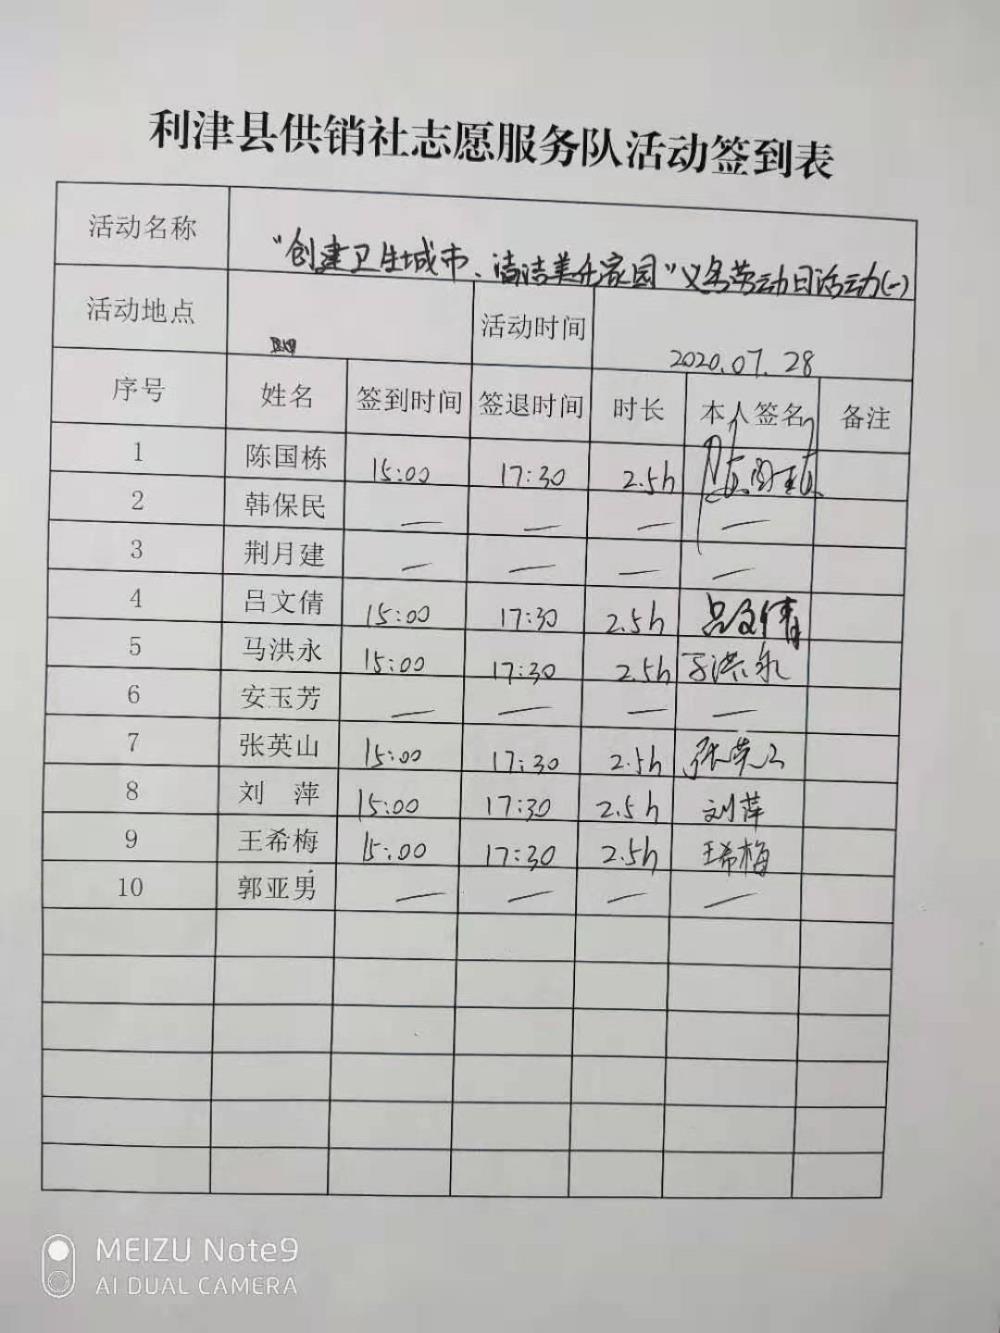 利津县供销社志愿服务队活动签到表
活动名称 "创建卫生城市、清洁美化家园"义务劳动日活动(一)
活动地点 活动时间 2020.07.28
序号 姓名 签到时间 签退时间 时长 本人签名 备注
1 陈国栋 15:00 17:30 2.5h 陈国栋
2 韩保民 — — — —
3 荆月建 — — — —
4 吕文倩 15:00 17:30 2.5h 吕文倩
5 马洪永 15:00 17:30 2.5h 马洪永
6 安玉芳 — — — —
7 张英山 15:00 17:30 2.5h 张英山
8 刘 萍 15:00 17:30 2.5h 刘萍
9 王希梅 15:00 17:30 2.5h 王希梅
10 郭亚男 — — — —
MEIZU Note9
AI DUAL CAMERA